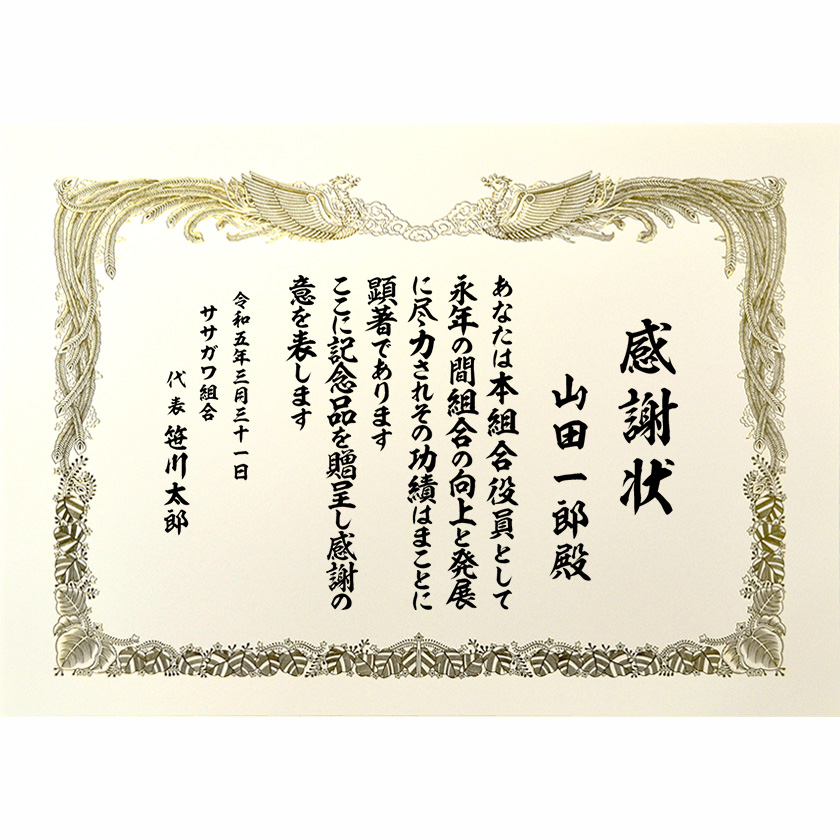 感謝状
山田一郎殿
あなたは本組合役員として
永年の間組合の向上と発展
に尽力されその功績はまことに
顕著であります
ここに記念品を贈呈し感謝の
意を表します
令和五年三月三十一日
ササガワ組合
代表 笹川太郎